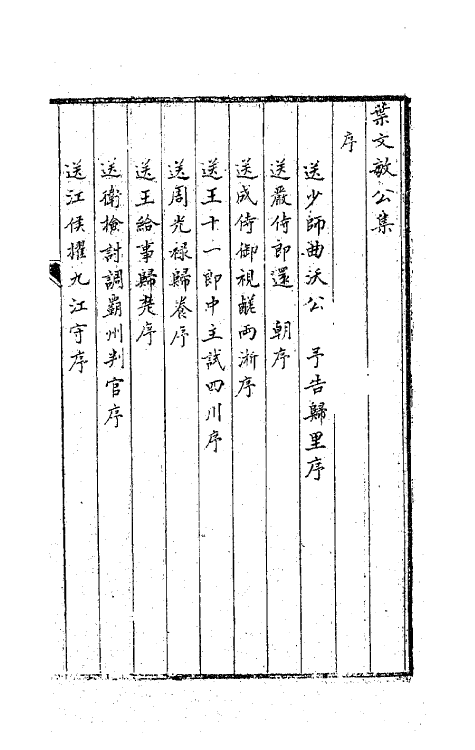 葉文敏公集
序
送少師曲沃公　予告歸里序
送嚴侍郎還　朝序
送成侍御視鹺兩浙序
送王十一郎中主試四川序
送周光祿歸養序
送王給事歸老序
送衛檢討調霸州判官序
送江侯擢九江守序